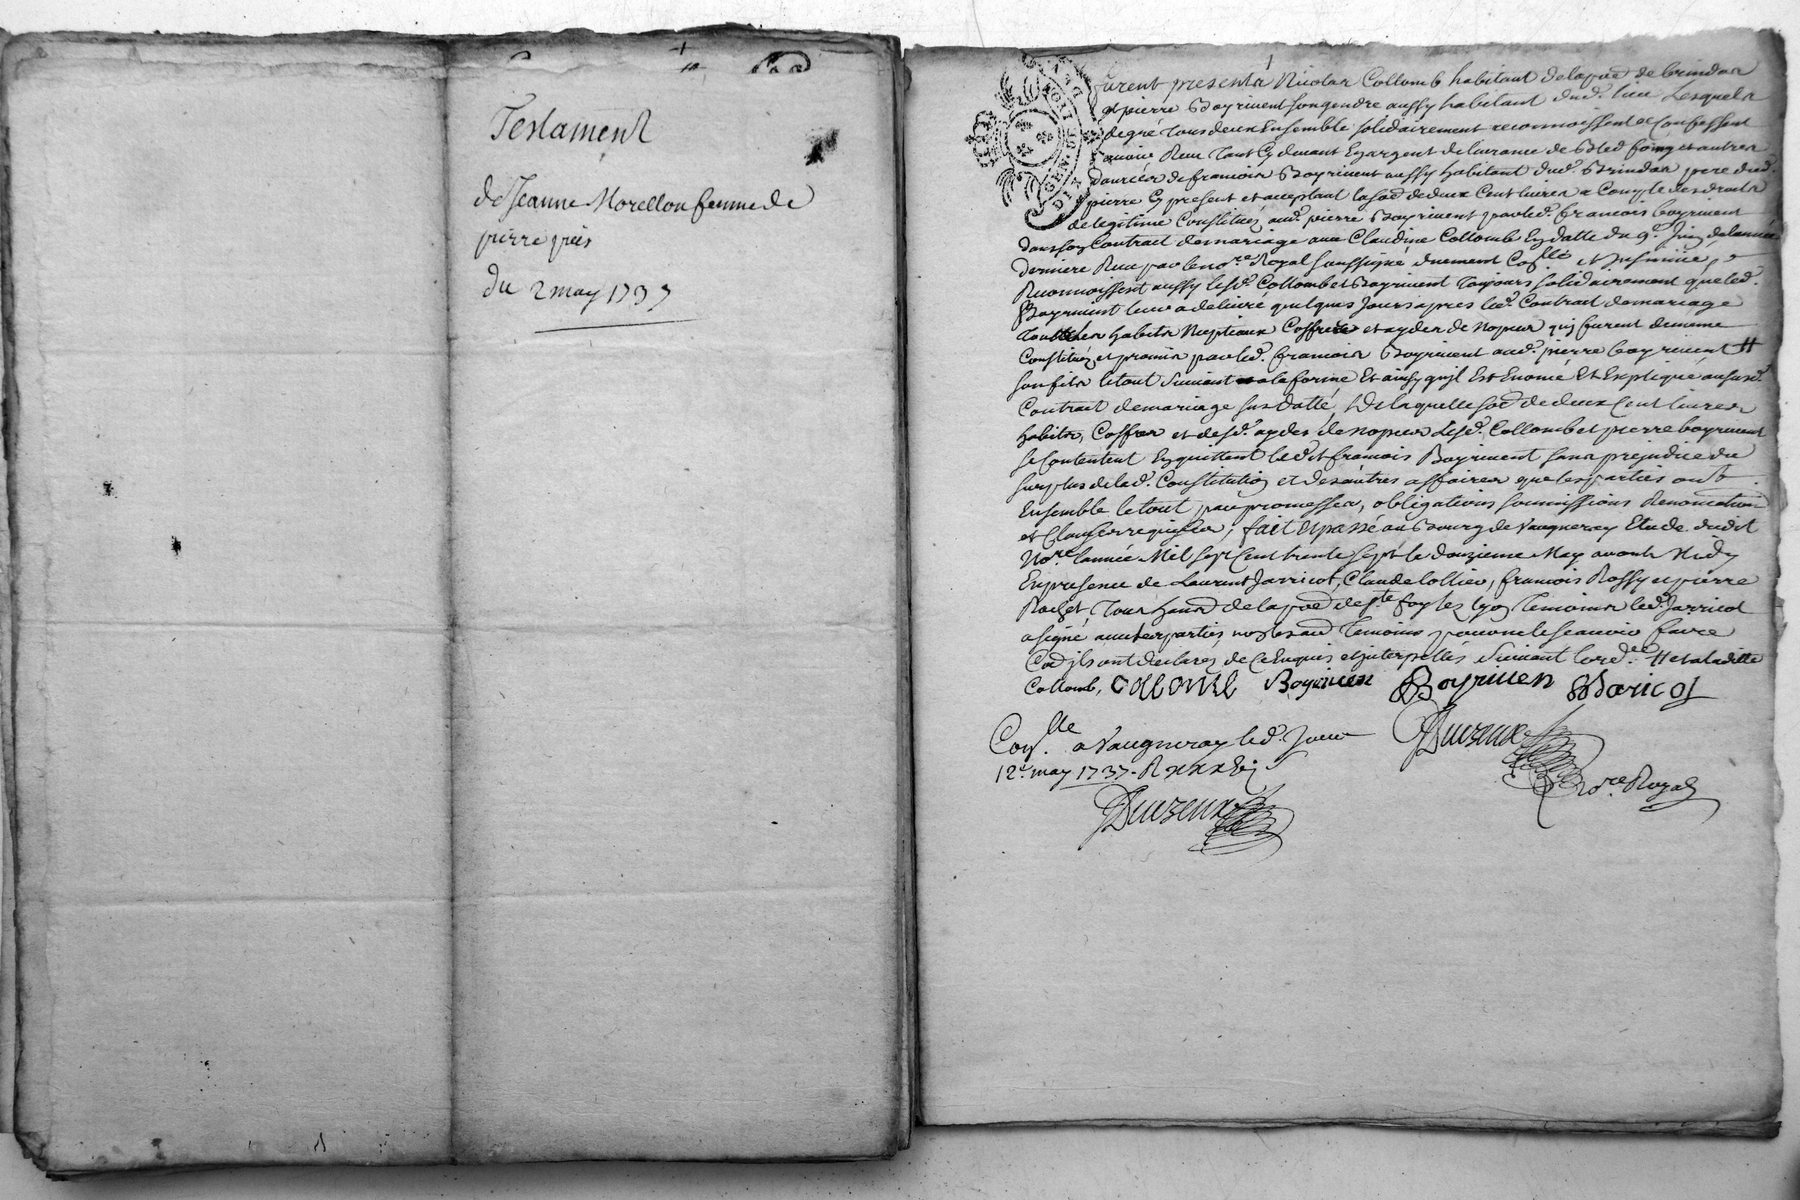 Testament
de Jeanne Morellon femme de
pierre pris
du 2 may 1737
GEN. DE LION
furent presents Nicolas Collomb habitant de la poe. de brindas
et pierre Boyrivent son gendre aussy habitant dud. lieu Lesquels
de gré Tous deux Ensemble solidairement reconnoissent et Confessent
avoir Reçu Tant Cy devant En argent delivrance de Bled foing et autres
danrées de francois Boyrivent aussy habitant dud. Brindas pere dud.
pierre Cy present et acceptant la soe. de deux Cent livres a Compte des droits
de legitime Constitués aud. pierre Boyrivent par led. francois boyrivent
dans son Contract de mariage avec Claudine Collomb En datte du 9e. Juin de lannée
derniere Reçu par le nore. Royal soussigné duement Coollé et Insinué,
Reconnoissent aussy lesd. Collomb et Boyrivent Toujours solidairement que led.
Boyrivent leur a delivré quelques Jours apres led. Contract de mariage
Tous les habits Nuptiaux Coffres et aydes de Nopces quy furent de meme
Constitués et promis par led. francois Boyrivent aud. pierre boyrivent #
son fils le tout suivant a la forme Et ainsy quil Est Enoncé Et Expliqué au susd.
Contract de mariage sus datté, De laquelle soe. de deux Cent livres
habits, Coffres et desd. aydes de nopces Lesd. Collomb et pierre boyrivent
se Contentent En quittent led. francois Boyrivent sans prejudice du
surplus de lad. Constitution et des autres affaires que les parties ont
Ensemble le tout par promesses, obligations soumissions Renonciations
et Clauses requises; fait et passé au Bourg de Vaugneray Etude dudit
Nore. lannée Mil sept Cent trente sept le douzieme May avant Midy
En presence de Laurent Jarricot, Claude Collier, francois Rossy et pierre
Rochet, Tous de la poe. de Ste. foy les lyon Temoins led. Jarricot
a signé avec les parties non les aud. Temoins pour ne le scavoir faire
ils ont declarés de Ce Enquis et Interpellés suivant lorde. # et a ladite
Collomb, COLOMB Boyriven Boyriven Jaricot
Conlle. a Vaugneray led. Jour
12e. may 1737. R
Duvzeux
nore. Royal
Duvzeux